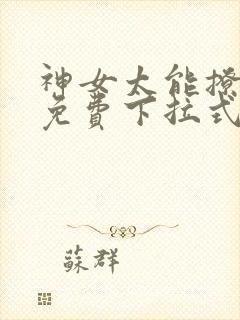 神女大能撩
免費下拉式
蘇群